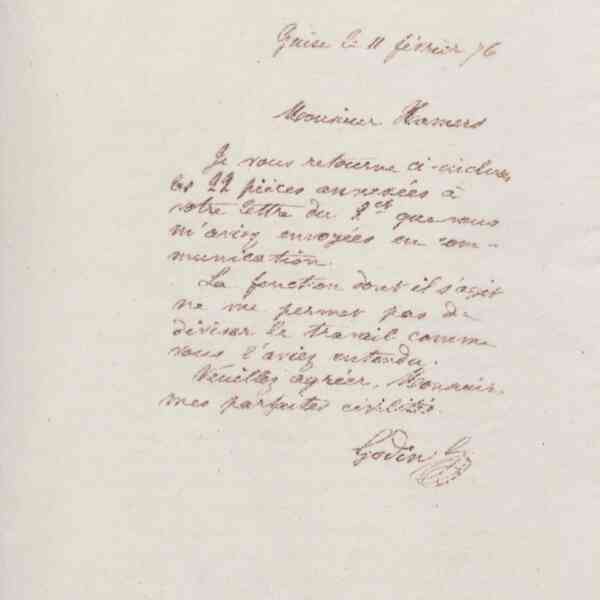 Guise le 11 février 76
Monsieur Hamers
Je vous retourne ci-inclus
les 22 pièces annexées à
votre lettre du 8 ct que vous
m'aviez envoyées en com-
munication.
La fonction dont il s'agit
ne me permet pas de
diviser le travail comme
vous l'aviez entendu.
Veuillez agréer, Monsieur,
mes parfaites civilités.
Godin